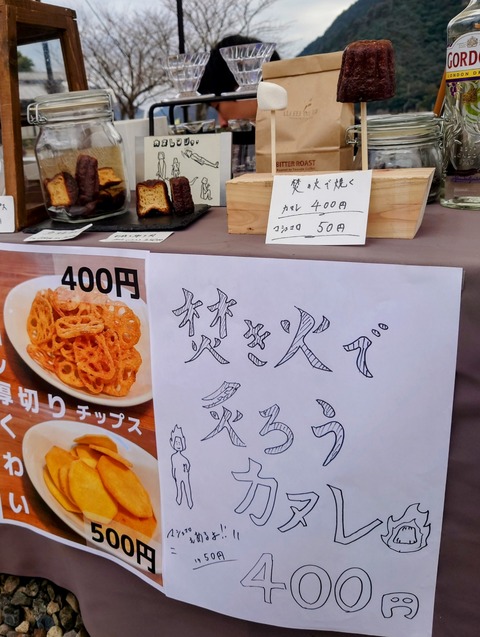 GORDO
LONDON DR
BITTER ROAST
焚火で焼く
カヌレ 400円
マシュマロ 50円
400円
厚切りチップス
くわい
500円
焚き火で
炙ろう
カヌレ
マシュマロもあるよ!!
50円
400円